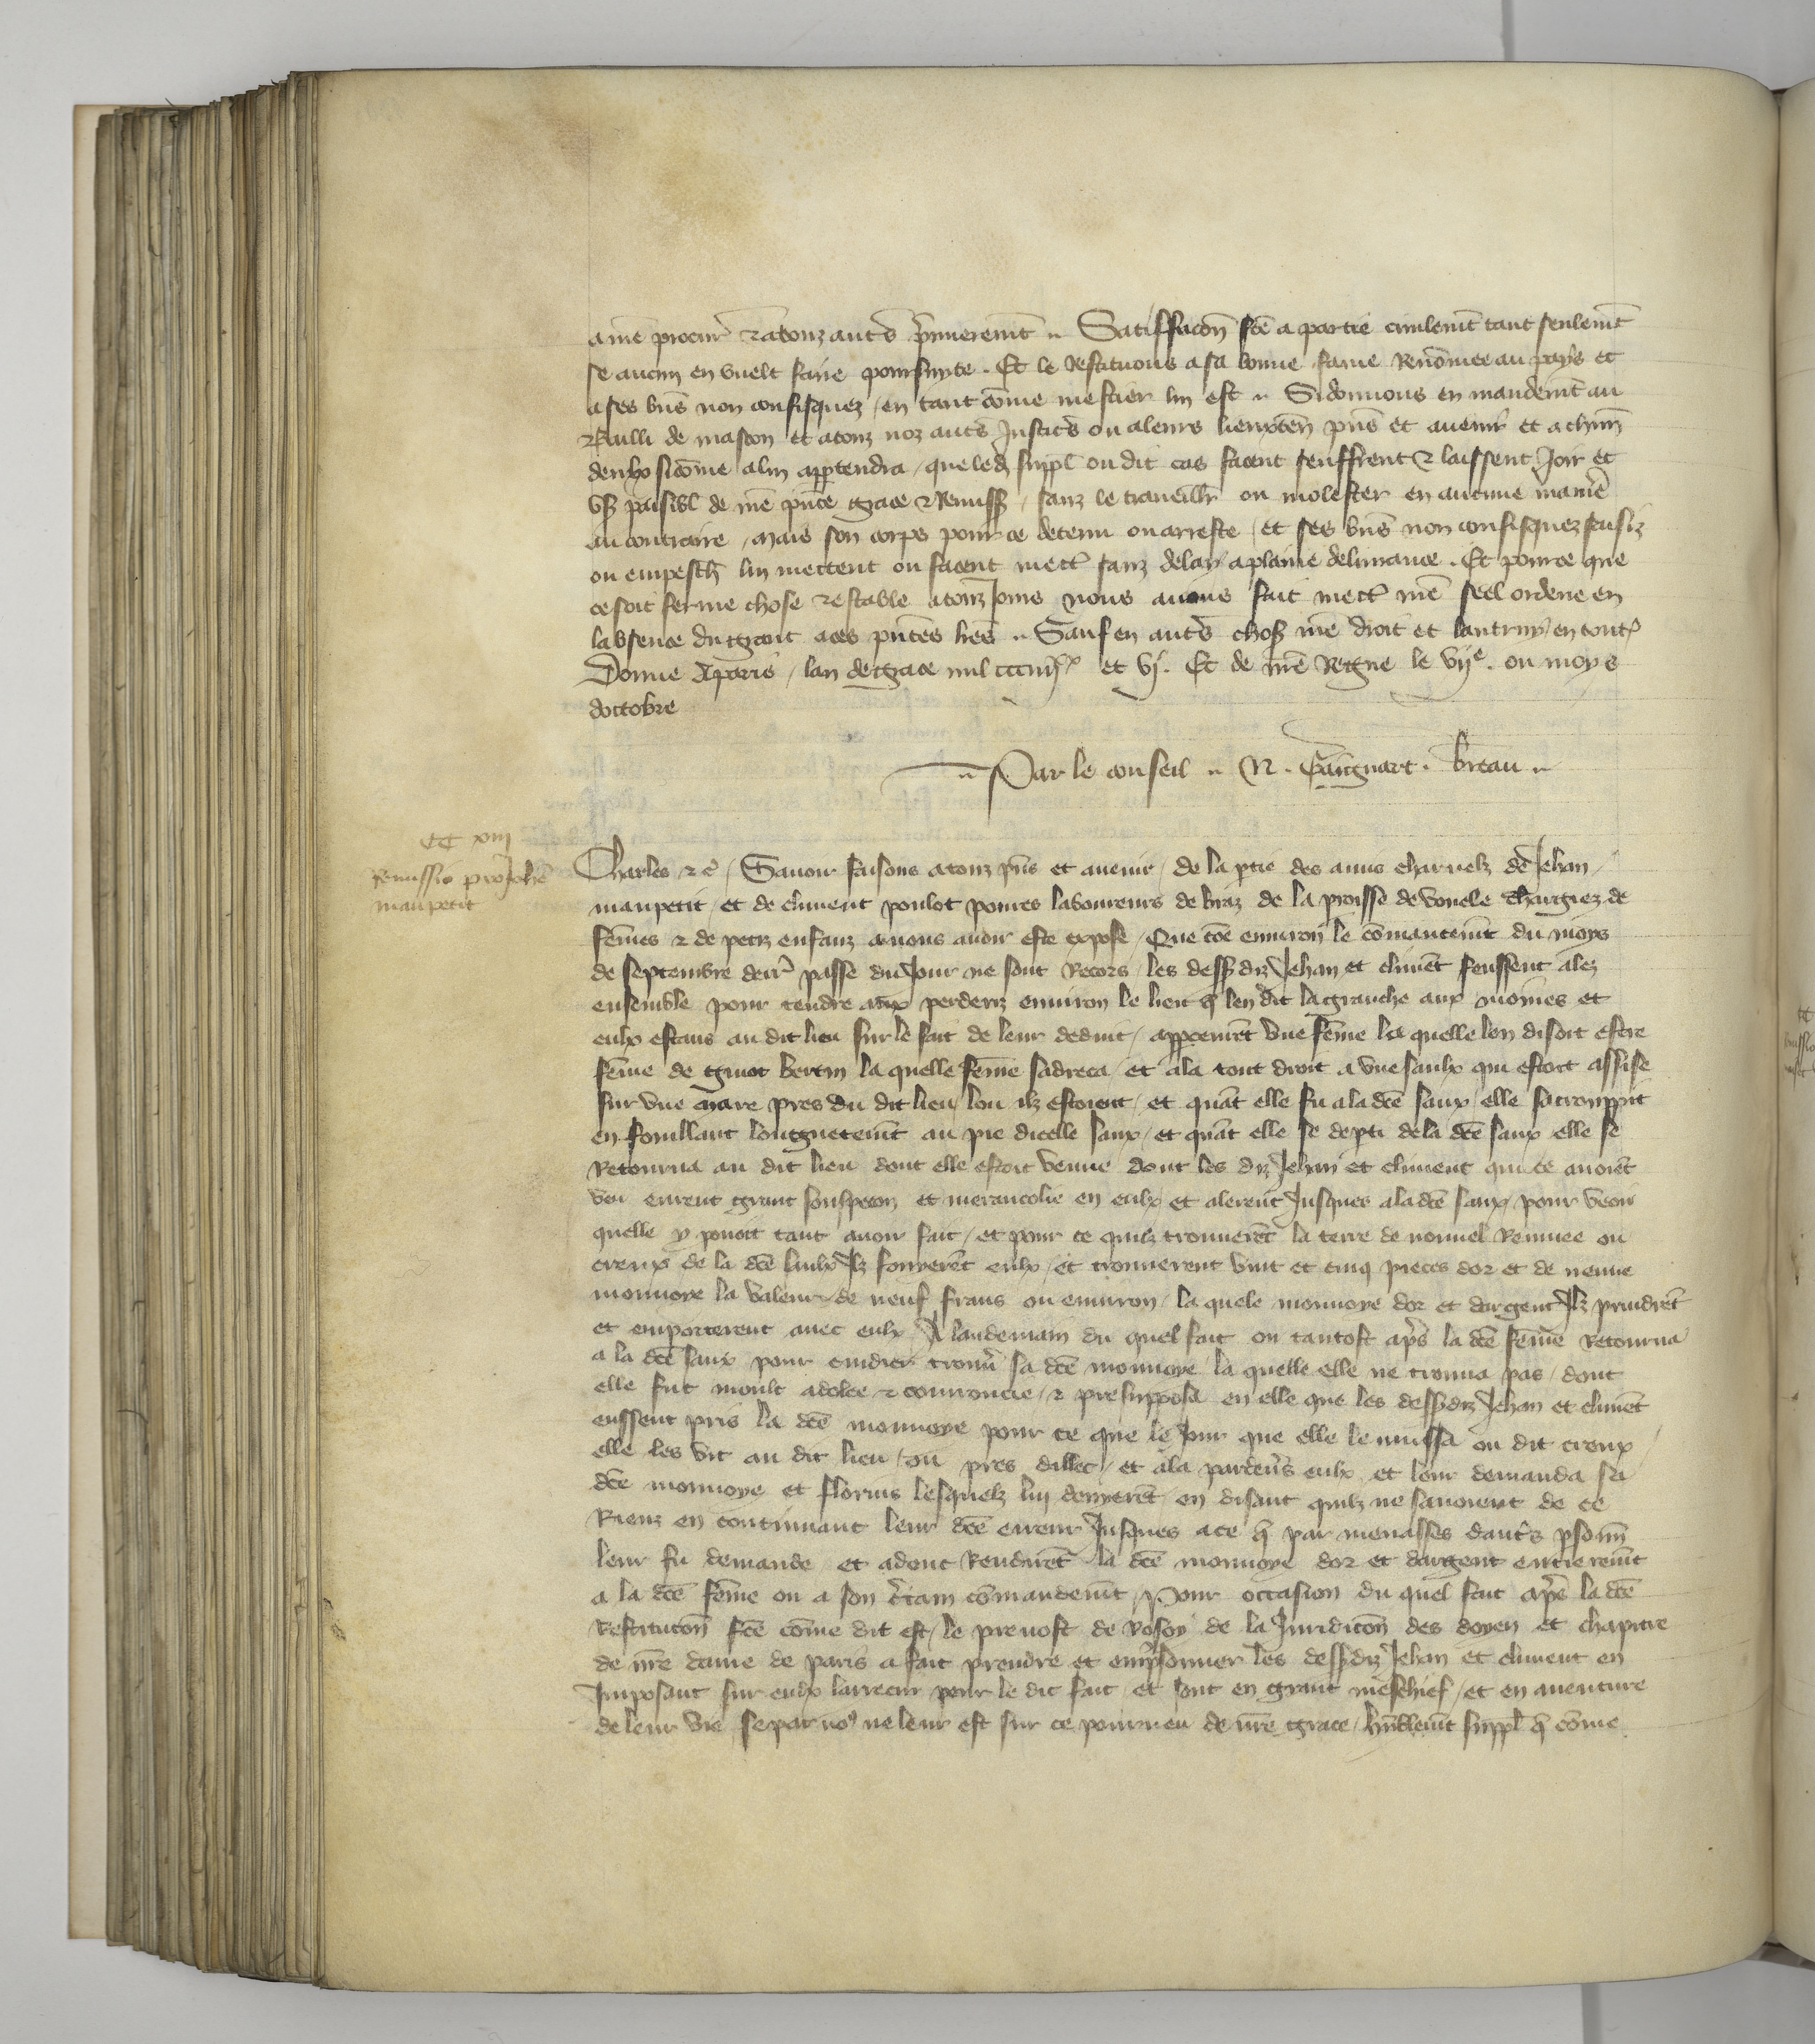 a nr̄e procur̄ & a touz autr̄s p̄mierem̄t .. Satisfacōn fcē a partie civilem̄t tant seulem̄t
se aucun en vuelt faire poursuyte . Et le restituons a sa bonne fame renōmee au pays et
a ses biēs non confisquez / en tant cōme mestier lui est .. Si donnons en mandem̄t au
Bailli de mascon et a touz noz autr̄s Justic̄s ou a leurs lieuxten̄ pn̄s et avenir et a chūn
deulx si cōme a lui appertendra / que led̄ suppl̄ ou dit cas facent seuffrent & laissent Joir et
us̄ paisibl̄ de nr̄e pn̄te grace & Remiss̄ / sanz le travaillr̄ ou molester en aucune manie͛
au contraire / Mais son corps pour ce detenu ou arreste / et ses biēs non confisquez saisiz
ou empesch̄ lui mettent ou facent mectr̄ sanz delay a plaine delivrance . Et pource que
ce soit ferme chose & estable a touzJours nous avons fait mectr̄ nr̄e seel ordene en
labsence du grant a ces pn̄tes lr̄es .. Sauf en autr̄s chos̄ nr̄e droit et lautruy en tout̄
Donne A paris / lan de grace mil CCC iiijxx et vj . Et de nr̄e Regne le vije . ou moys
doctobre
.. Par le conseil .. N . Gaingnart . Breau ..
CC xiiij
Remissio pro Joh̄e
maupetit
Charles &c̄ / Savoir faisons a touz pn̄s et avenir / de la p̄tie des amis charnelz de Jehan
maupetit / et de climent poulot povres laboureurs de braz de la p̄oisse de vouele chargiez de
fēmes & de petiz enfanz a nous avoir este expose / Que cōe environ le cōmancem̄t du moys
de septembre derr̄ passe du Jour ne sont Recors / les dess̄ diz Jehan et climēt feussent alez
ensemble pour tendre aux perderiz environ le lieu q̄ len dit la granche aux moines et
eulx estans au dit lieu sur le fait de leur deduit / apperceurēt une fēme la quelle lon disoit estre
fēme de guiot bertin la quelle fēme sadreca et ala tout droit a une saulx qui estoit assise
sur une mare pres du dit lieu lou ilz estoient / et quāt elle fu a la dcē saux / elle sacrouppit
en fouillant longuetem̄t au pie dicelle saux / et quāt elle se dep̄ti de la dcē saux elle se
Retourna au dit lieu dont elle estoit venue dont les diz Jehan et climent qui ce avoiēt
veu eurent grant souspecon et merancolie en eulx / et alerent Jusques a la dcē saux / pour veoir
quelle y povoit tant avoir fait / et pour ce quilz trouverēt la terre de nouvel Remuee ou
creux de la dcē saulx Ilz fouyerēt eulx / et trouverent vint et cinq pieces dor et de menue
monnoye la valeur de neuf frans ou environ / la quele monnoye dor et dargent Ilz prindrēt
et emporterent avec eulx / A landemain du quel fait ou tantost apr̄s la dcē fēme Retourna
a la dcē saux pour cuidier trouv̄ sa dcē monnoye la quelle elle ne trouva pas / dont
elle fut moult adolee & courroucie / & presupposa en elle que les dess̄diz Jehan et climēt
eussent pris la dcē monnoye pour ce que le Jour que elle le mussa ou dit creux
elle les vit au dit lieu / ou pres dillec / et ala par devs̄ eulx et leur demanda sa
dcē monnoye et florins lesquelz lui denyerēt en disant quilz ne savoient de ce
Riens en continuant leur dcē erreur Jusques a ce q̄ par menasses dautr̄s p̄sonn̄
leur fu demande et adonc Rendirēt la dcē monnoye dor et dargent entierem̄t
a la dcē fēme ou a son c̄tain cōmandem̄t / Pour occasion du quel fait apr̄s la dcē
Restitucōn fcē cōme dit est / le prevost de Rosoy de la Juridicōn des doyen et chapitre
de nr̄e dame de paris a fait prendre et emp̄sonner les dess̄diz Jehan et climent en
Imposant sur eulx larrecin pour le dit fait / et sont en grant meschief / et en aventure
de leur vie se par noꝰ ne leur est sur ce pourveu de nr̄e grace / hūblem̄t suppl̄ q̄ cōme